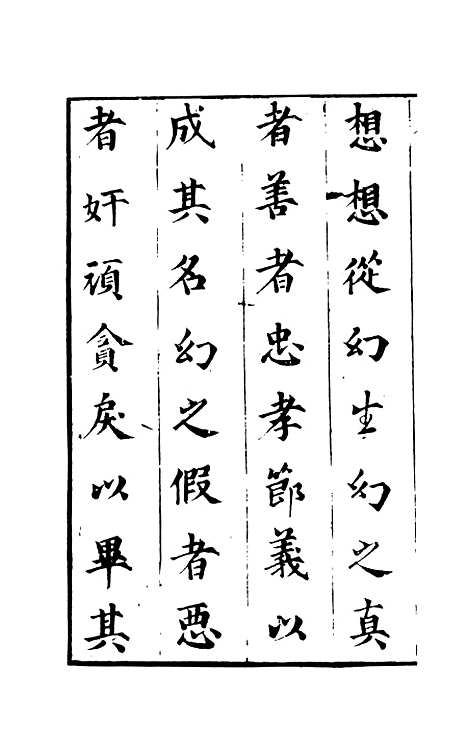 想想從幻生幻之真
者善者忠孝節義以
成其名幻之假者惡
者奸頑貪戾以畢其